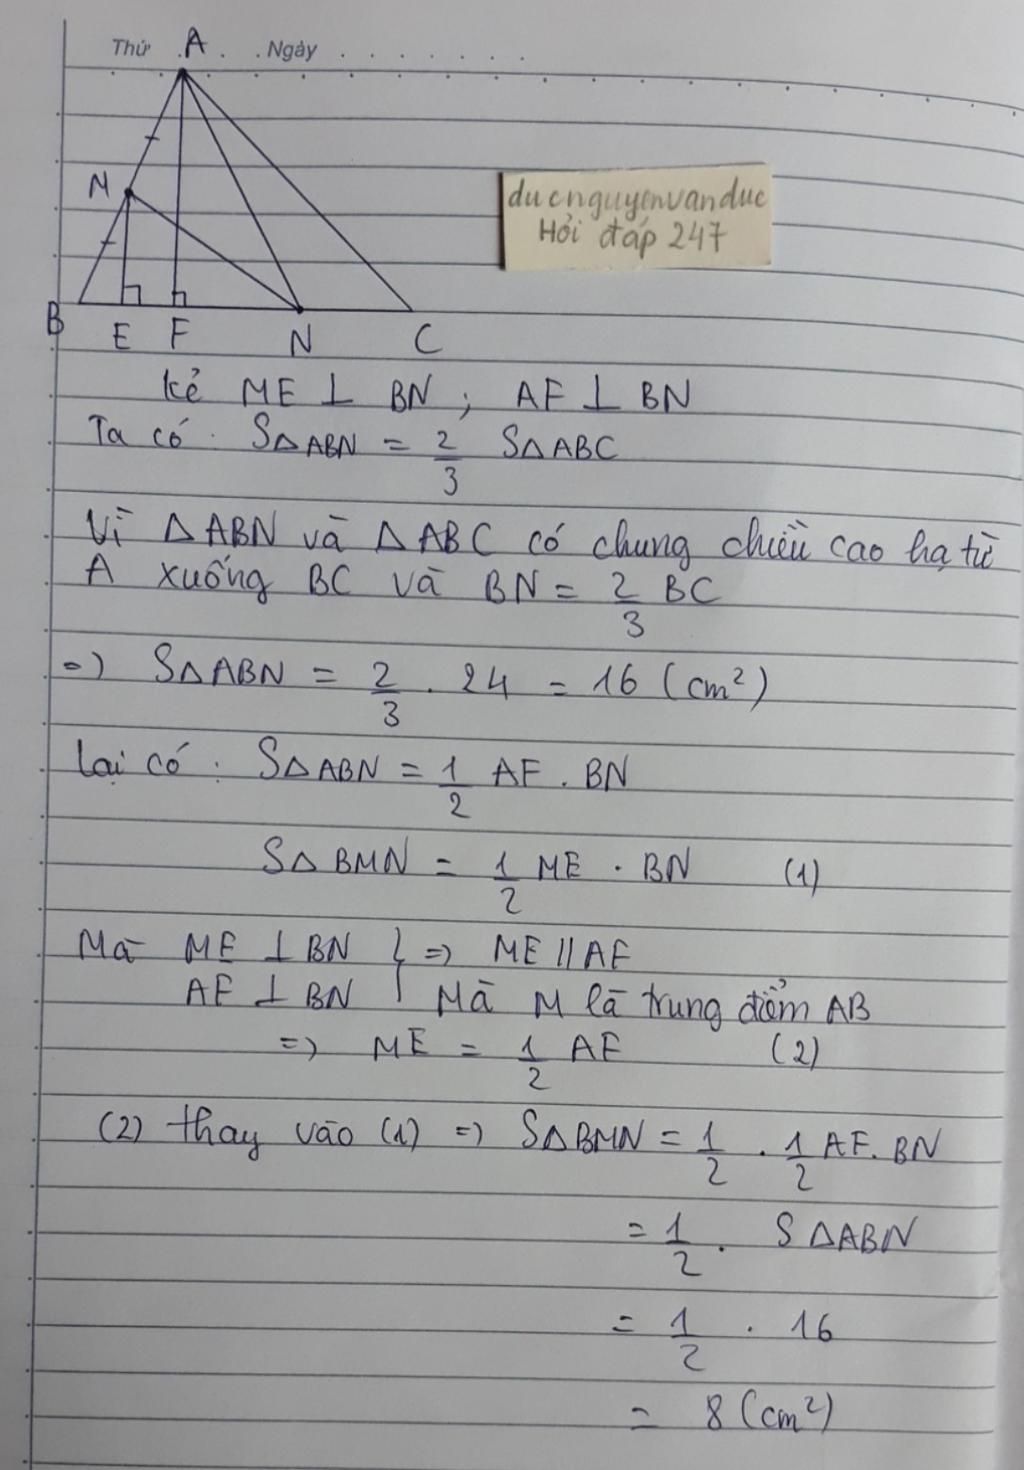 Thứ . A . . Ngày . . . . . . . .
M
ducnguyenvanduc
Hỏi đáp 247
B E F N C
kẻ ME ⊥ BN ; AF ⊥ BN
Ta có : S△ABN = 2/3 S△ABC
Vì △ABN và △ABC có chung chiều cao hạ từ
A xuống BC và BN = 2/3 BC
=> S△ABN = 2/3 . 24 = 16 (cm²)
Lại có : S△ABN = 1/2 AF . BN
S△BMN = 1/2 ME . BN (1)
Mà ME ⊥ BN } => ME // AF
AF ⊥ BN } Mà M là trung điểm AB
=> ME = 1/2 AF (2)
(2) thay vào (1) => S△BMN = 1/2 . 1/2 AF. BN
= 1/2 . S△ABN
= 1/2 . 16
= 8 (cm²)